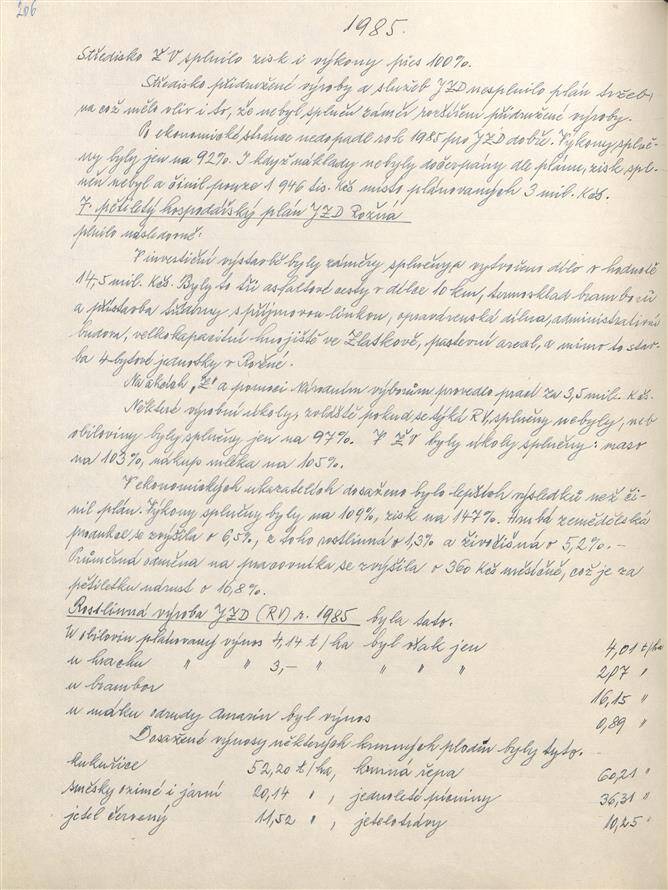 206
1985.
Středisko ŽV splnilo zisk i výkony přes 100%.
Středisko přidružené výroby a služeb JZD nesplnilo plán tržeb,
na což mělo vliv i to, že nebyl splněn záměr rozšíření přidružené výroby.
Po ekonomické stránce nedopadl rok 1985 pro JZD dobře. Výkony, splně-
ny byly jen na 92%. I když náklady nebyly dočerpány dle plánu, zisk, spl-
něn nebyl a činil pouze 1 946 tis. Kčs místo plánovaných 3 mil. Kčs.
7. pětiletý hospodářský plán JZD Rožná
plnilo následovně:
V investiční výstavbě byly záměry splněny a vytvořeno dílo v hodnotě
14,5 mil. Kčs. Byly to tři asfaltové cesty v délce 10 km, termosklad bramborů
a přístavba třídírny s příjmovou linkou, opravárenská dílna, administrativní
budova, velkokapacitní hnojiště ve Zlatkově, pastevní areál, a mimo to stav-
ba 4 bytové jednotky v Rožné.
Na akcích „Z" a pomoci Národním výborům provedlo prací za 3,5 mil. Kčs.
Některé výrobní úkoly, zvláště pokud se týká RV, splněny nebyly, neb
obiloviny byly splněny jen na 97%. V ŽV byly úkoly splněny: maso
na 103%, nákup mléka na 105%.
V ekonomických ukazatelích dosaženo bylo lepších výsledků než či-
nil plán. Výkony splněny byly na 109%, zisk na 147%. Hrubá zemědělská
produkce se zvýšila o 6,5%, z toho rostlinná o 1,3% a živočišná o 5,2%. –
Průměrná odměna na pracovníka se zvýšila o 360 Kčs měsíčně, což je za
pětiletku nárust o 16,8%.
Rostlinná výroba JZD (RV) r. 1985 byla tato.
U obilovin plánovaný výnos 4,14 t/ha byl však jen 4,01 t/ha
u hrachu " " 3,– " " " " 2,07 "
u brambor 16,15 "
u máku odrudy Amarin byl výnos 0,89 "
Dosažené výnosy některých krmných plodin byly tyto.
kukuřice 52,20 t/ha, krmná řepa 60,21 "
směsky ozimé i jarní 20,14 ", jednoleté pícniny 36,31 "
jetel červený 11,52 ", jetelotrávy 10,25 "